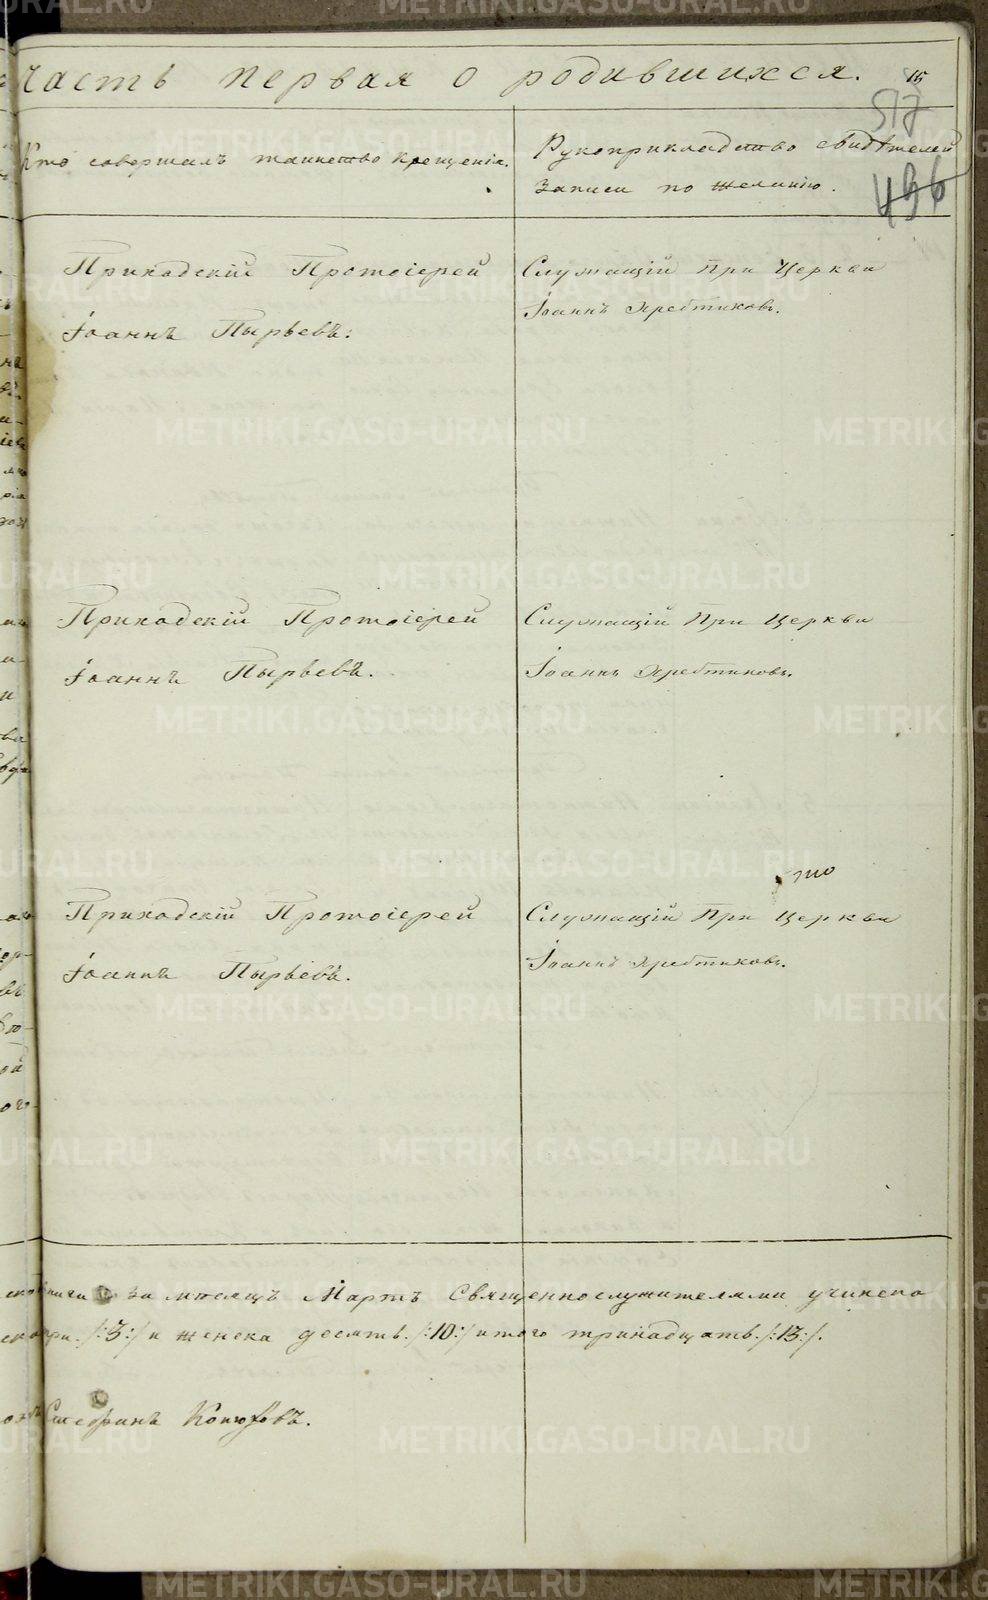 Часть первая о родившихся.
15
517
496
Кто совершалъ таинство крещенія.
Рукоприкладство свидѣтелей
записи по желанію.
Приходскій Протоіерей
Іоаннъ Пырьевъ:
Служащій При Церкви
Іоаннъ
Приходскій Протоіерей
Іоаннъ Пырьевъ.
Служащій При Церкви
Іоаннъ
Приходскій Протоіерей
Іоаннъ Пырьевъ.
Служащій При Церкви
Іоаннъ
за мѣсяцъ Мартъ Священнослужителями учинена
/:3:/ и женска десять /:10:/ итого тринадцать /:13:/.
Стефанъ
METRIKI.GASO-URAL.RU